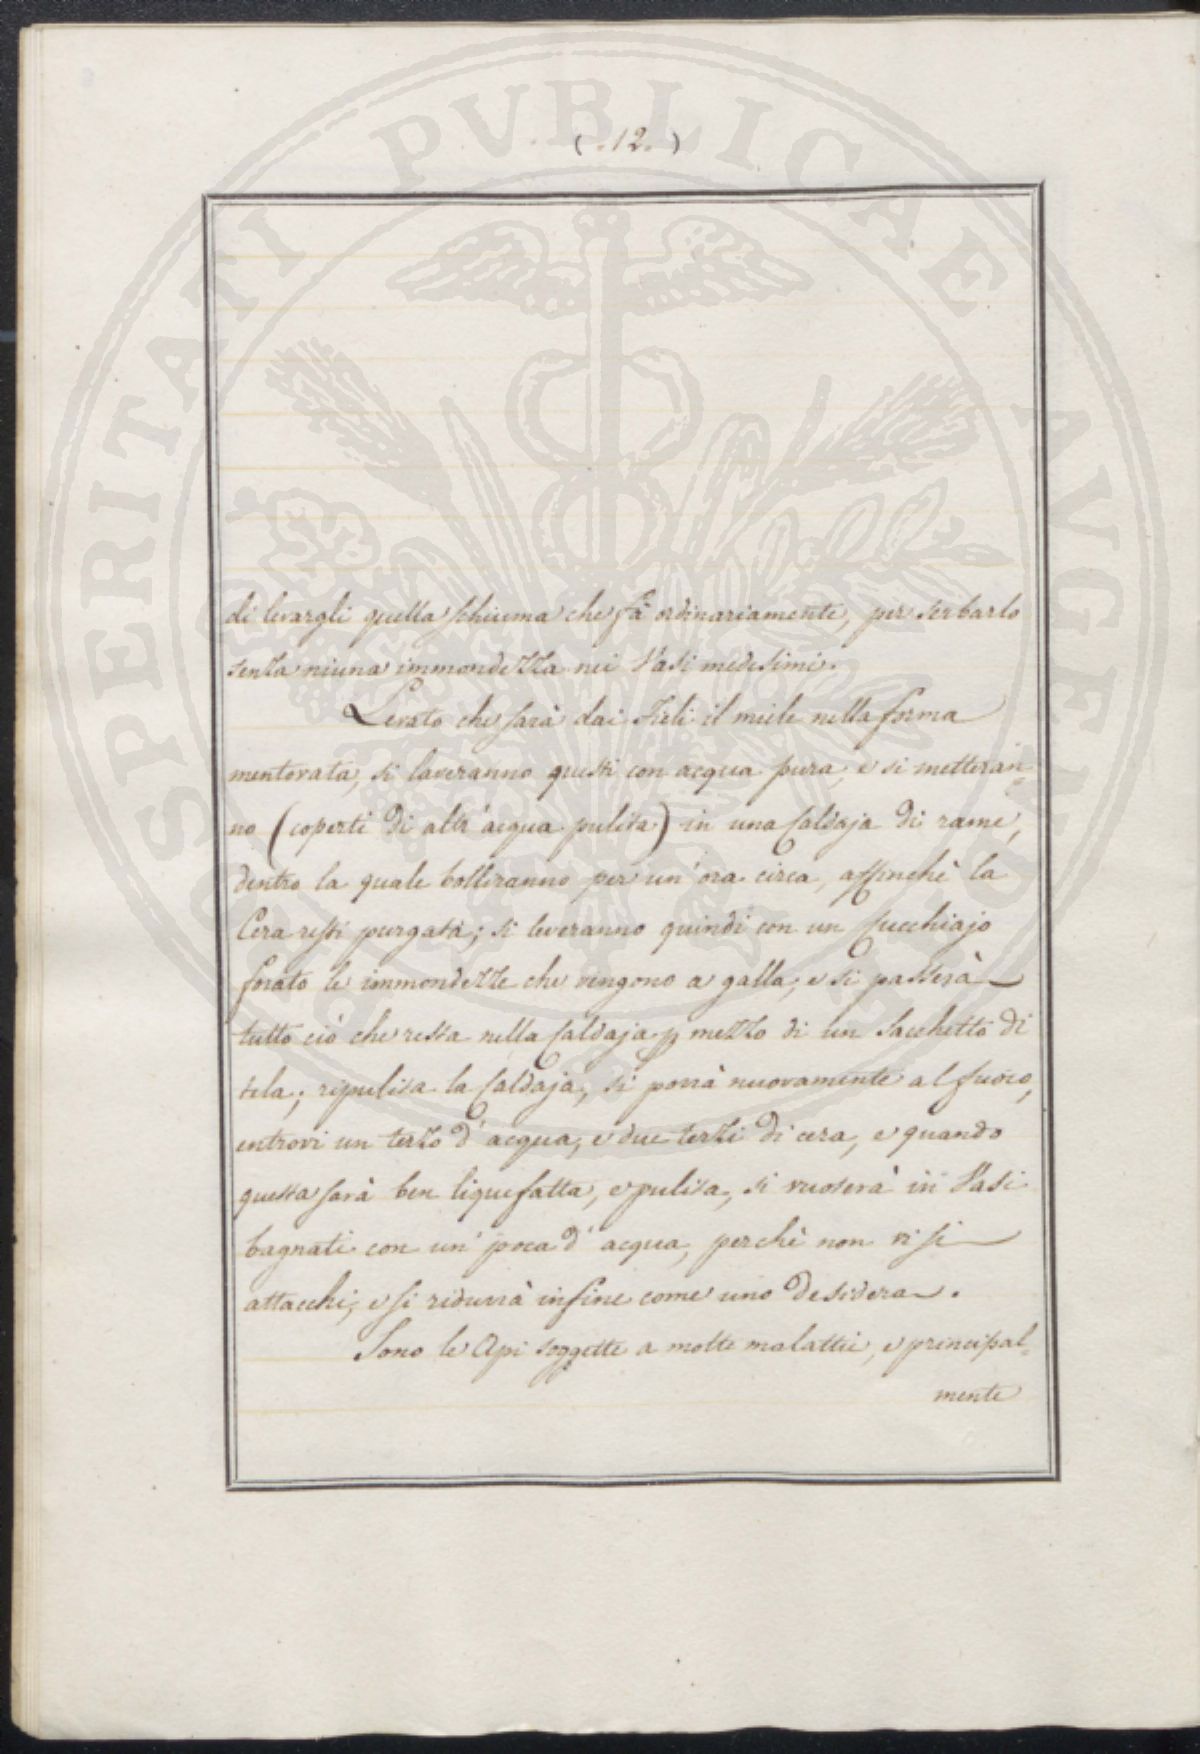 ( .12. )
di levargli quella schiuma che fà ordinariamente, per serbarlo
senza niuna immondezza nei Vasi medesimi.
Levato che sarà dai Fieli il miele nella forma
mentovata, si laveranno questi con acqua pura, e si metteran=
no (coperti di altr' acqua pulita) in una Caldaja di rame,
dentro la quale bolliranno per un' ora circa, affinchè la
Cera resti purgata; si leveranno quindi con un Cucchiajo
forato le immondezze che vengono a galla, e si passerà
tutto ciò che resta nella Caldaja p mezzo di un Sacchetto di
tela; ripulita la Caldaja, si porrà nuovamente al fuoco,
entrovi un terzo d' acqua, e due terzi di cera, e quando
questa sarà ben liquefatta, e pulita, si vuoterà in Vasi
bagnati con un' poca d' acqua, perchè non vi si
attacchi, e si ridurrà infine come uno desidera.
Sono le Api soggette a molte malattie, e principal=
mente
PROSPERITATI PVBLICAE AVGENDAE